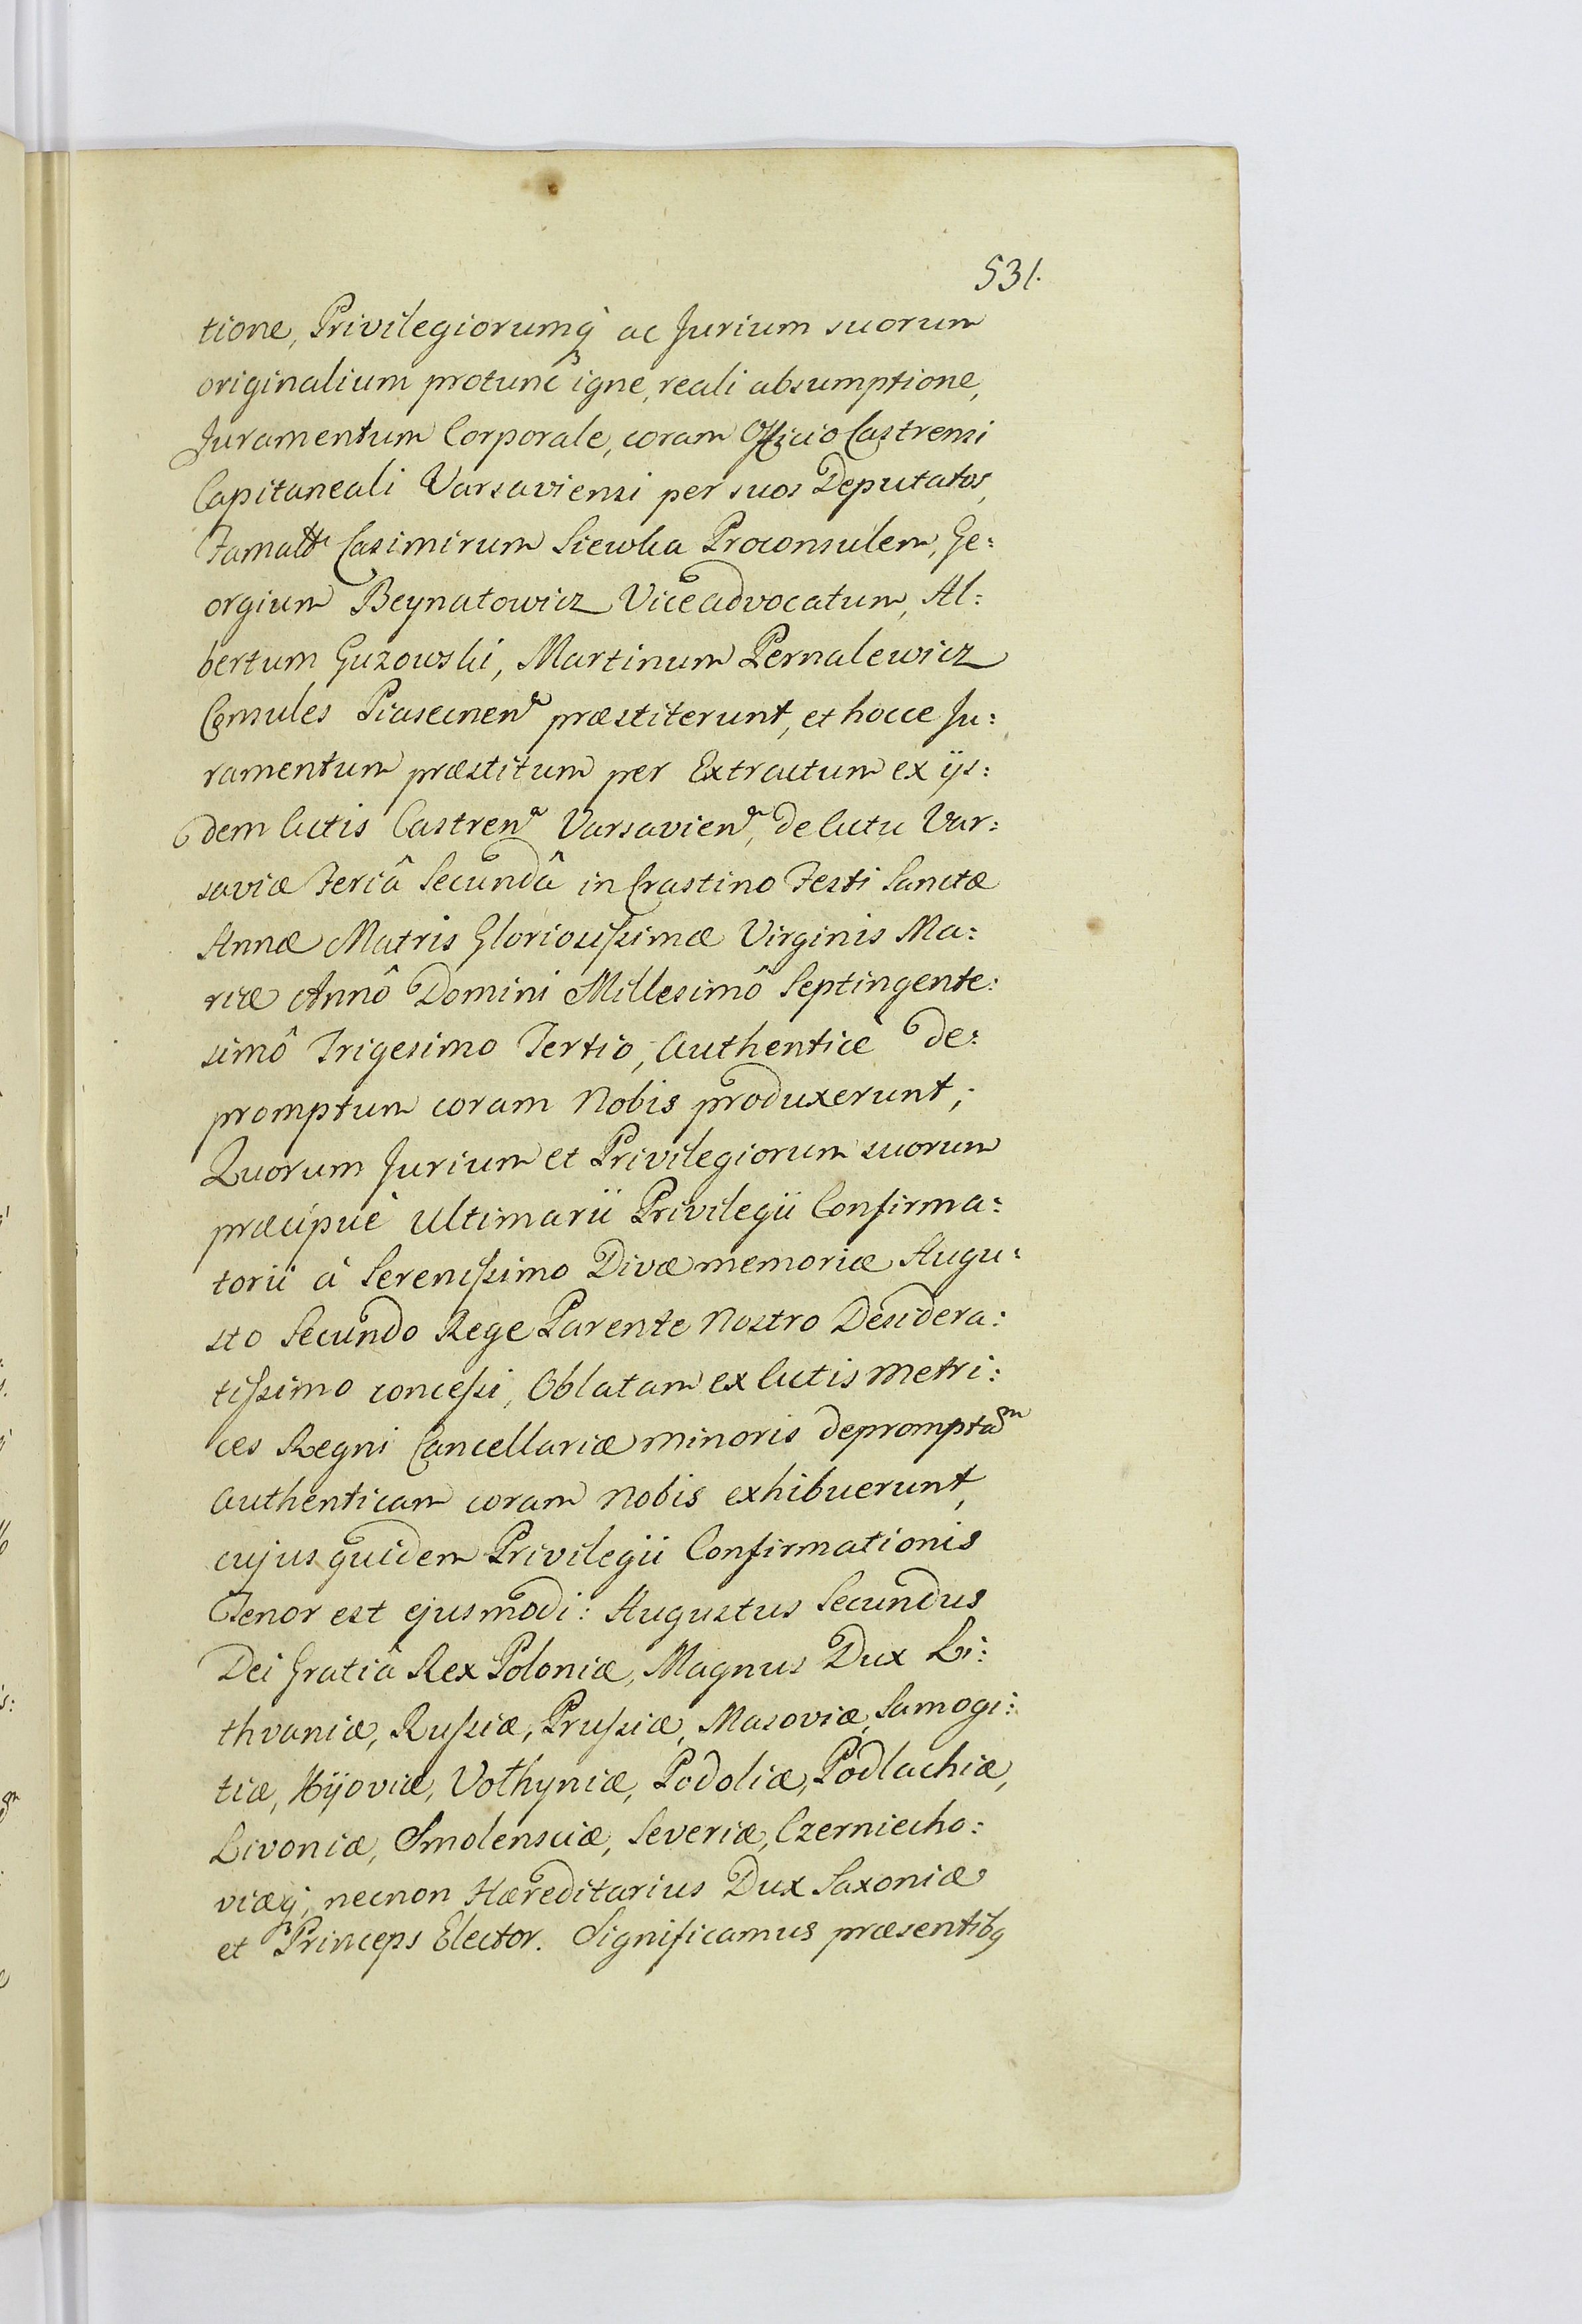 531.
tione, Privilegiorumq́ ac Jurium suorum
originalium protunc igne, reali absumptione,
Juramentum Corporale, coram Officio Castrensi
Capitaneali Varsaviensi per suos Deputatos,
Casimirum Siewka Proconsulem, Ge:
orgium Beynatowicz Viceadvocatum, Al:
bertum Guzowski, Martinum Pernalewicz
Consules Piasecnen̄ præstiterunt, et hocce Ju:
ramentum præstitum per Extractum ex ijs:
dem Actis Castren̄ Varsavien̄, de Actu Var:
saviæ Feriâ Secundâ in Crastino Festi Sanctæ
Annæ Matris Gloriosissimæ Virginis Ma:
riæ Annô Domini Millesimô Septingente:
simô Trigesimo Tertio, Authenticè de:
promptum coram Nobis produxerunt;
Quorum Jurium et Privilegiorum suorum
præcipuè Ultimarii Privilegii Confirma:
torii à Serenissimo Divæ memoriæ Augu:
sto Secundo Rege Parente Nostro Desidera:
tissimo concessi, Oblatam ex Actis Metri:
ces Regni Cancellariæ minoris depromptam
Authenticam coram Nobis exhibuerunt,
cujus quidem Privilegii Confirmationis
Tenor est ejusmodi: Augustus Secundus
Dei Gratiâ Rex Poloniæ, Magnus Dux Li:
thvaniæ, Russiæ, Prussiæ, Masoviæ, Samogi:
tiæ, Kijoviæ, Volhyniæ, Podoliæ, Podlachiæ,
Livoniæ, Smolensciæ, Severiæ, Czerniecho:
viæq́, necnon Hæreditarius Dux Saxoniæ
et Princeps Elector. Significamus præsentibq